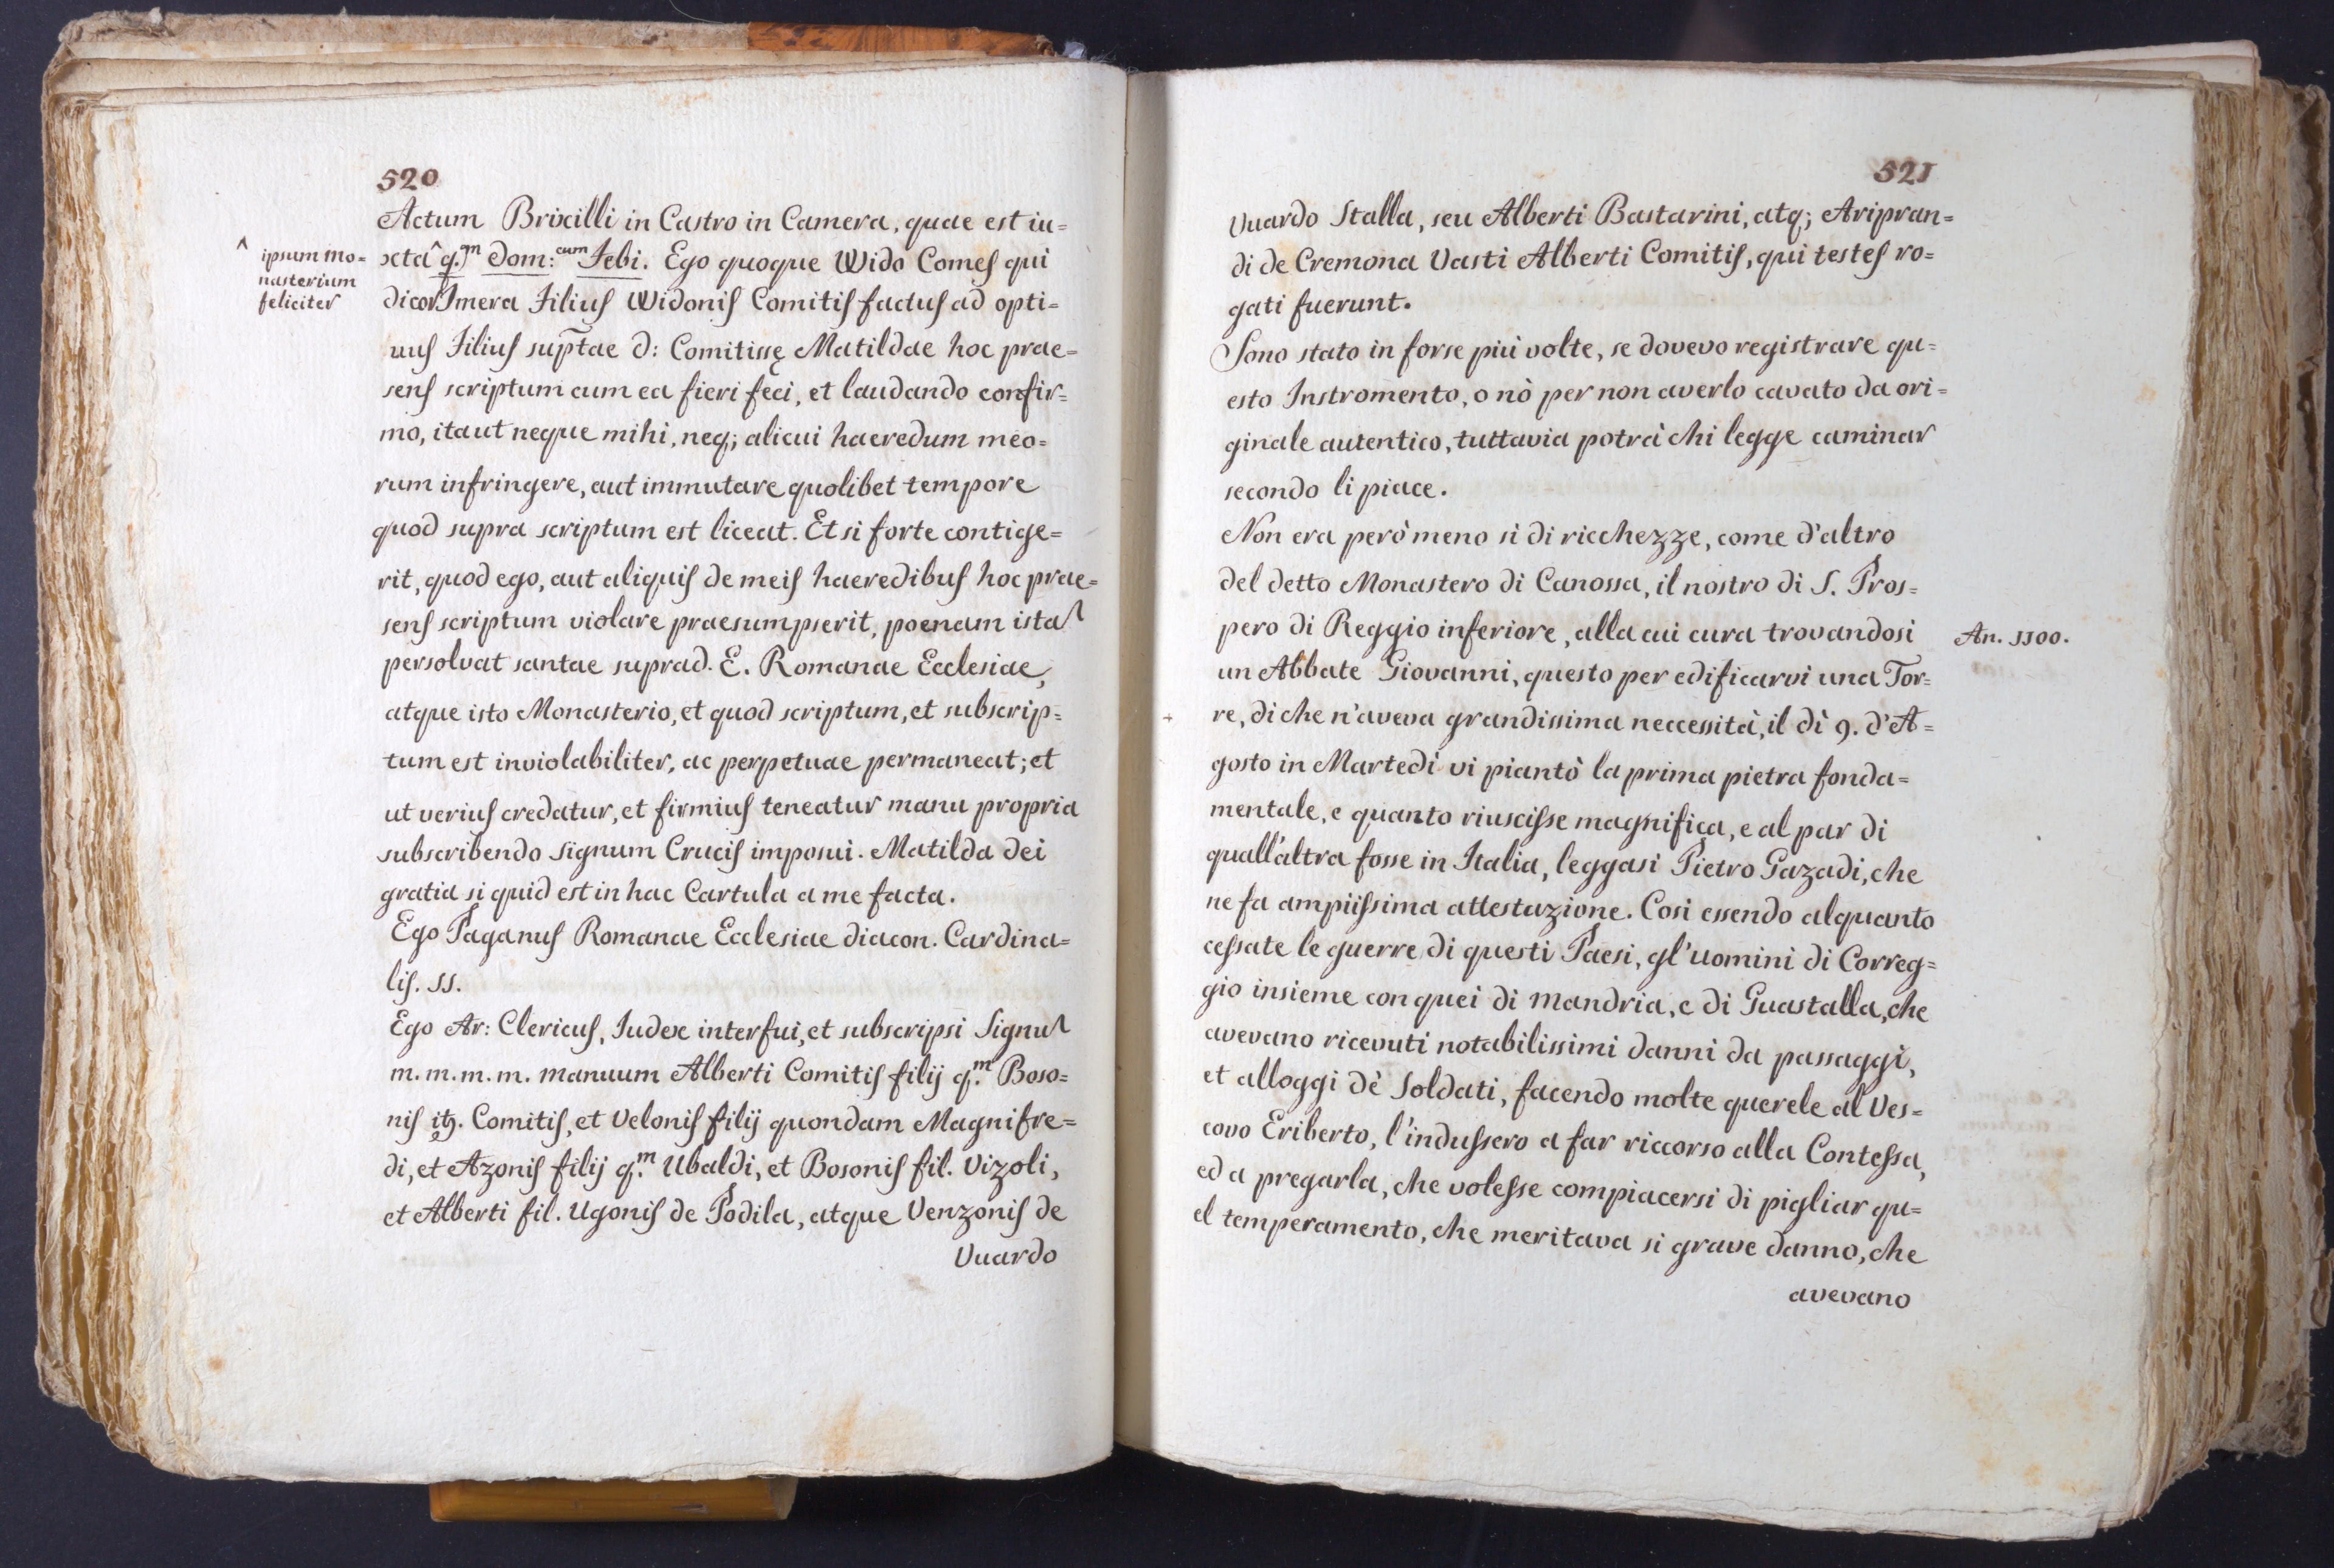 520
Actum Brixilli in Castro in Camera, quae est iu=
^ ipsum mo=
nasterium
feliciter
xta^ q.m dom: cum Febi. Ego quoque Wido Comes qui
dicor Imera Filius Widonis Comitis factus adopti=
uus Filius suptae d: Comitissę Matildae hoc prae=
sens scriptum cum ea fieri feci, et laudando confir=
mo, itaut neque mihi, neq; alicui haeredum meo=
rum infringere, aut immutare quolibet tempore
quod supra scriptum est liceat. Et si forte contige=
rit, quod ego, aut aliquis de meis haeredibus hoc prae=
sens scriptum violare praesumpserit, poenam ista
persolvat santae suprad. E. Romanae Ecclesiae,
atque isto Monasterio, et quod scriptum, et subscrip=
tum est inviolabiliter, ac perpetuae permaneat; et
ut verius credatur, et firmius teneatur manu propria
subscribendo signum Crucis imposui. Matilda dei
gratia si quid est in hac Cartula a me facta.
Ego Paganus Romanae Ecclesiae diacon. Cardina=
lis. ss.
Ego Ar: Clericus, Iudex interfui, et subscripsi Signu
m. m. m. m. manuum Alberti Comitis filij q.m Boso=
nis itȝ. Comitis, et Velonis filij quondam Magnifre=
di, et Azonis filij q.m Ubaldi, et Bosonis fil. Vizoli,
et Alberti fil. Ugonis de Podila, atque Venzonis de
Vuardo
521
Vuardo Stalla, seu Alberti Bastarini, atq; Aripran=
di de Cremona Vasti Alberti Comitis, qui testes ro=
gati fuerunt.
Sono stato in forse più volte, se dovevo registrare qu=
esto Instromento, o nò per non averlo cavato da ori=
ginale autentico, tuttavia potrà chi legge caminar
secondo li piace.
Non era però meno si di ricchezze, come d'altro
del detto Monastero di Canossa, il nostro di S. Pros=
pero di Reggio inferiore, alla cui cura trovandosi
An. 1100.
un Abbate Giovanni, questo per edificarvi una Tor=
re, di che n'aveva grandissima neccessità, il dì 9. d'A=
gosto in Martedì vi piantò la prima pietra fonda=
mentale, e quanto riuscisse magnifica, e al par di
quall'altra fosse in Italia, leggasi Pietro Gazadi, che
ne fa ampiissima attestazione. Cosi essendo alquanto
cessate le guerre di questi Paesi, gl'uomini di Correg=
gio insieme con quei di Mandria, e di Guastalla, che
avevano ricevuti notabilissimi danni da passaggi,
et alloggi dè Soldati, facendo molte querele al Ves=
covo Eriberto, l'indussero a far riccorso alla Contessa,
ed a pregarla, che volesse compiacersi di pigliar qu=
el temperamento, che meritava si grave danno, che
avevano